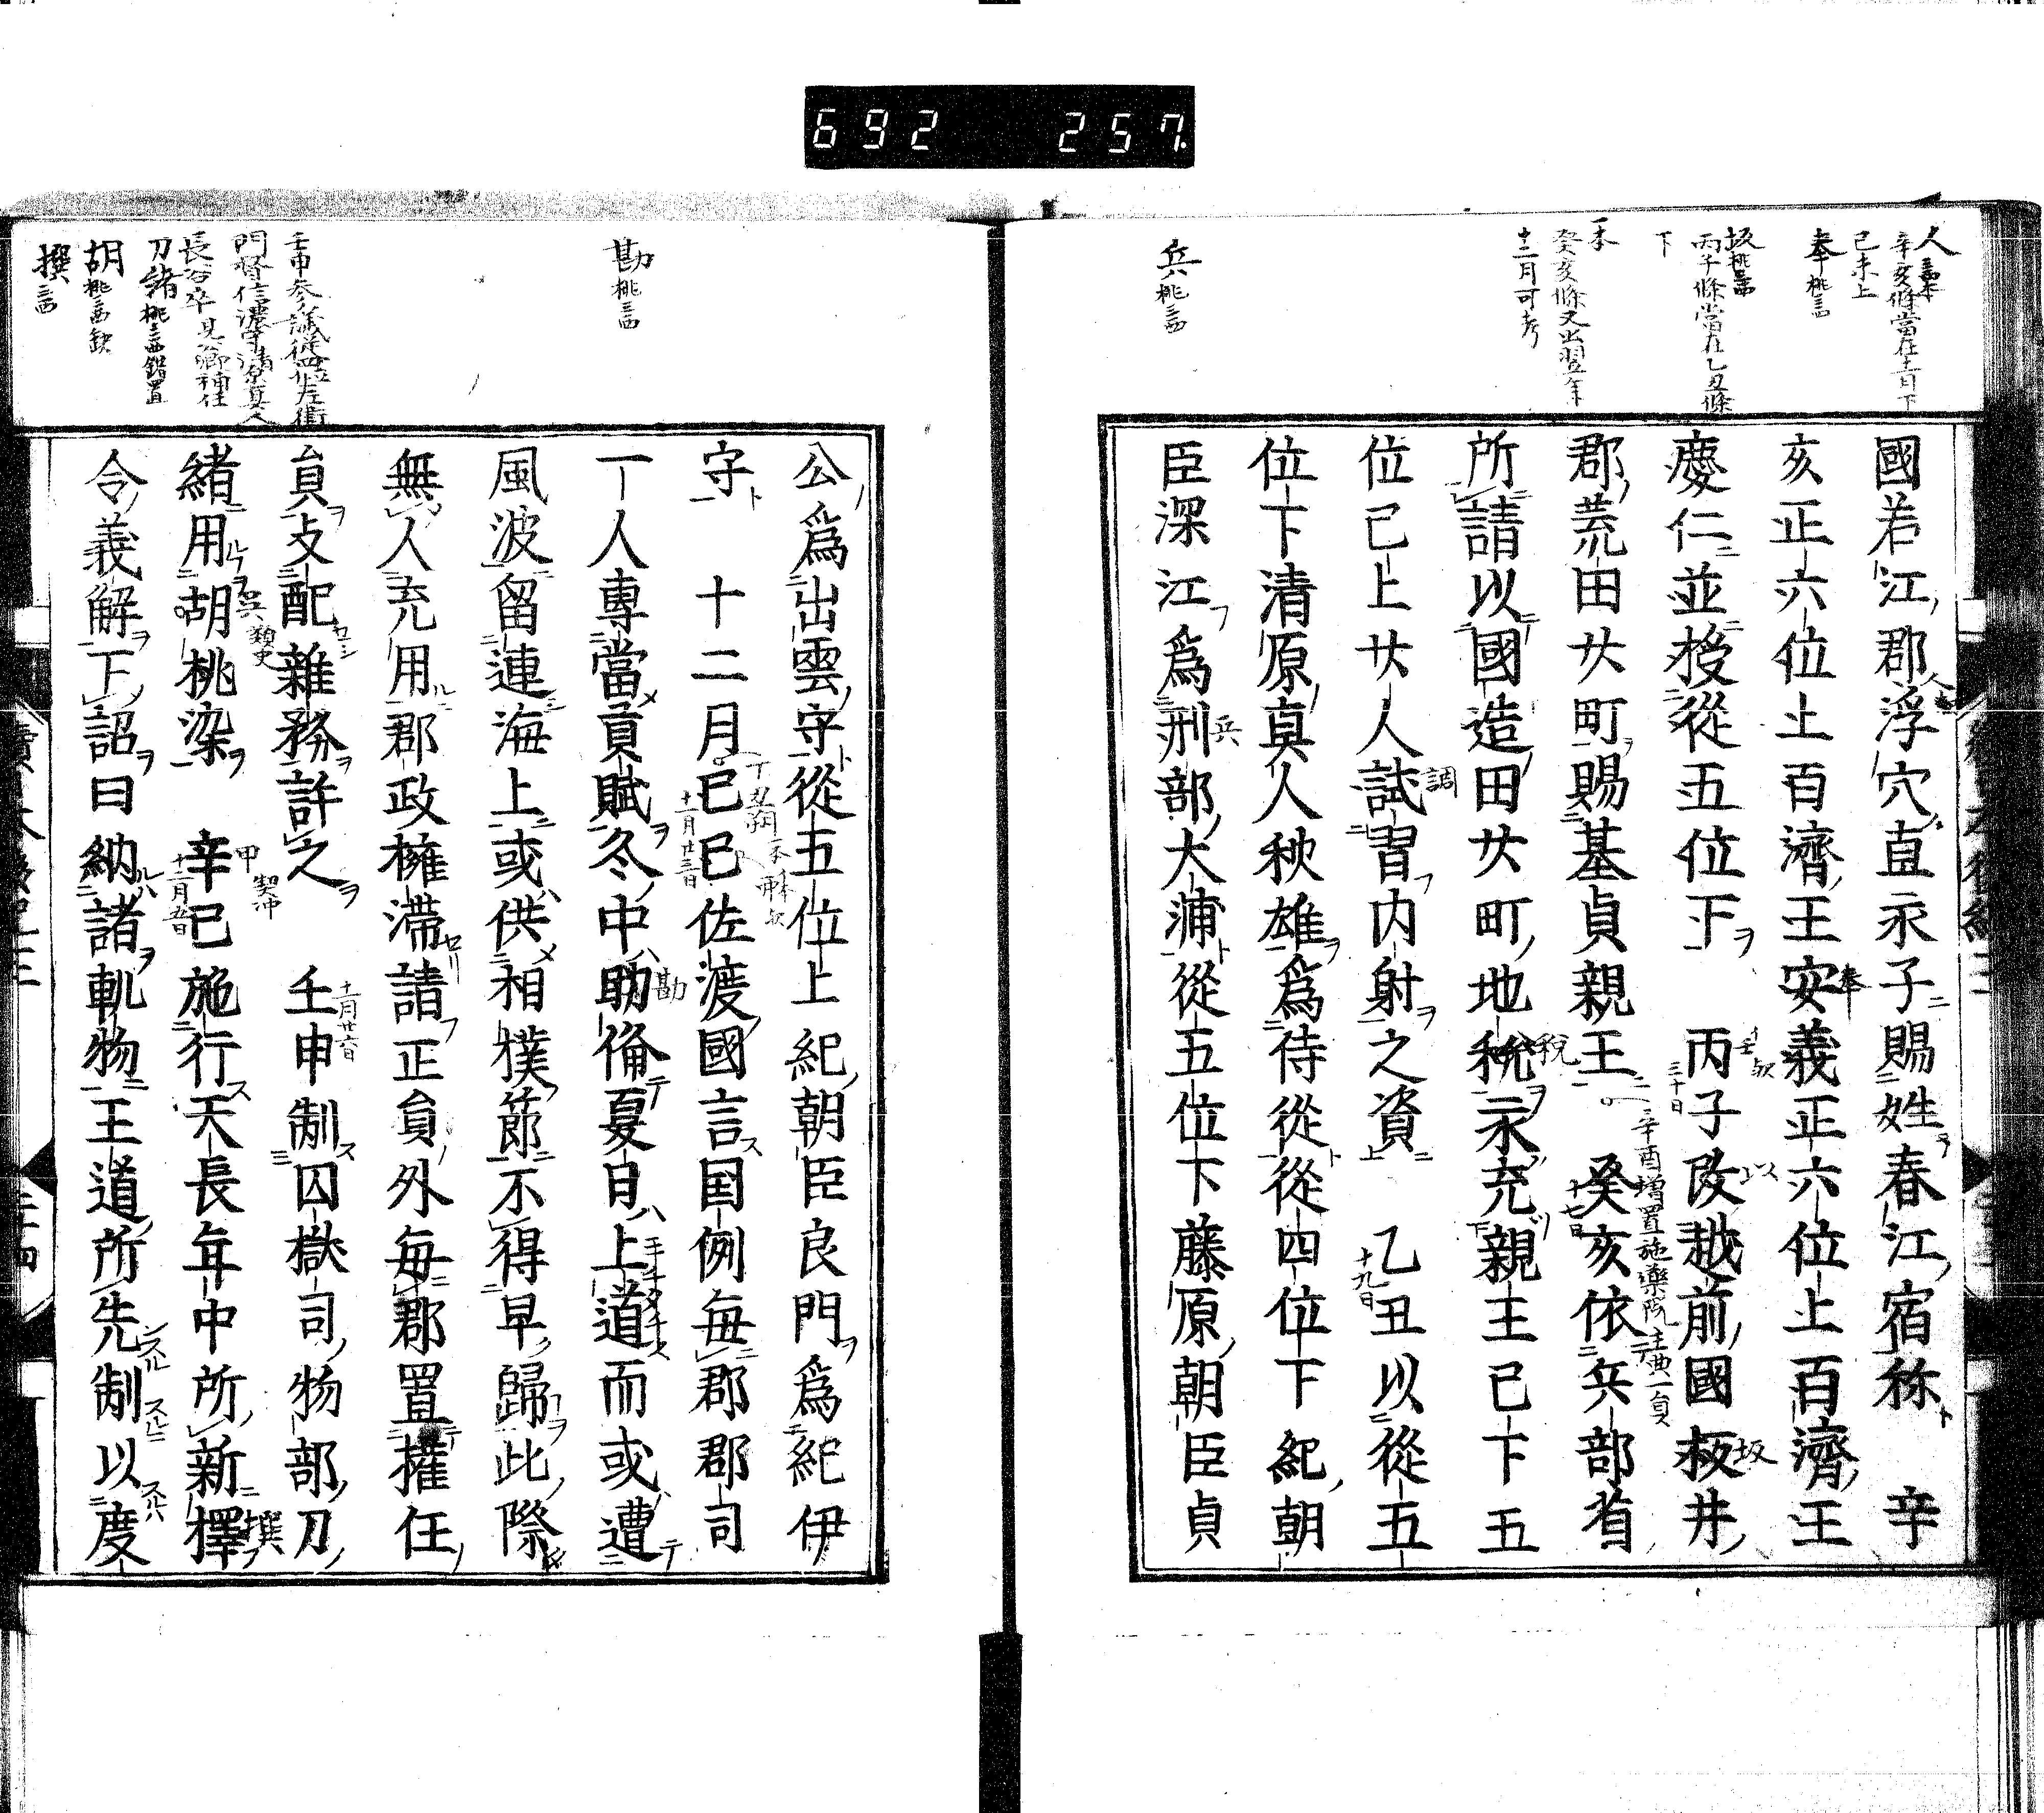 692 257
國若江郡浮穴直永子賜姓春江宿祢 辛
亥正六位上百濟王安義正六位上百濟王
慶仁並授從五位下 丙子改越前國坂井
郡荒田廿町賜基貞親王 癸亥依兵部省
所請以國造田廿町地税永充親王已下五
位已上廿人試習内射之資 乙丑以從五
位下清原真人秋雄爲侍從從四位下紀朝
臣深江爲刑部大浦從五位下藤原朝臣貞
公爲出雲守從五位上紀朝臣良門爲紀伊
守 十二月己巳佐渡國言国例毎郡郡司
一人專當貢賦冬中助倫夏日上道而或遭
風波留連海上或供相撲節不得早歸此際
無人充用郡政擁滯請正員外毎郡置權任
員支配雜務許之 壬申制囚獄司物部刀
緒用胡桃染 辛巳施行天長年中所新擇
令義解下詔曰納諸軌物王道所先制以度
辛亥條當在十一月下
己未上
奉桃
丙子條當在乙丑條
下
癸亥條又出翌年
十二月可考
兵桃
勘桃
壬申参議從四位下左衛
門督信濃守清原真人
長谷卒見公卿補任
刀緒桃
胡桃
撰
人
奉
坂
税
辛酉増置施藥院主典一員
三十日
十七日
調
十九日
兵
十一月廿三日
勘
十一月廿六日
類史
甲 契沖
十二月五日
撰